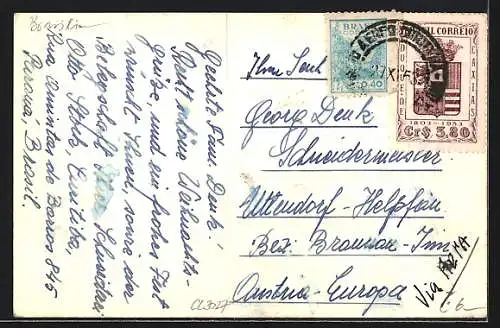 Brasilien
Geehrte Fam. Denk!
Recht schöne Weihnachts-
grüsse, und ein frohes Fest
wünscht Ihnen, sowie der
Belegschaft Ihrer Schneiderei
Otto Stark Curitiba,
Rua Amintas de Barros 845
Paraná, Brasil.
BRASIL
0,40
BRASIL CORREIO
DUQUE DE CAXIAS
1803 - 1953
Cr$ 5,80
27 XI 5
Herrn
Georg Denk
Schneidermeister
Uttendorf - Helpfau
Bez. Braunau - Inn
Austria - Europa
Via